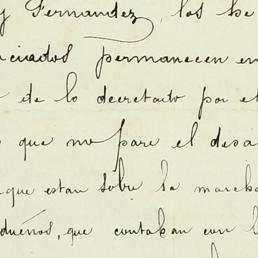 y Fernandez, los be
ciados permanecen en
de lo decretado por el
que no pare el desa
que estan sobre la marcha
dueños, que contaban con l